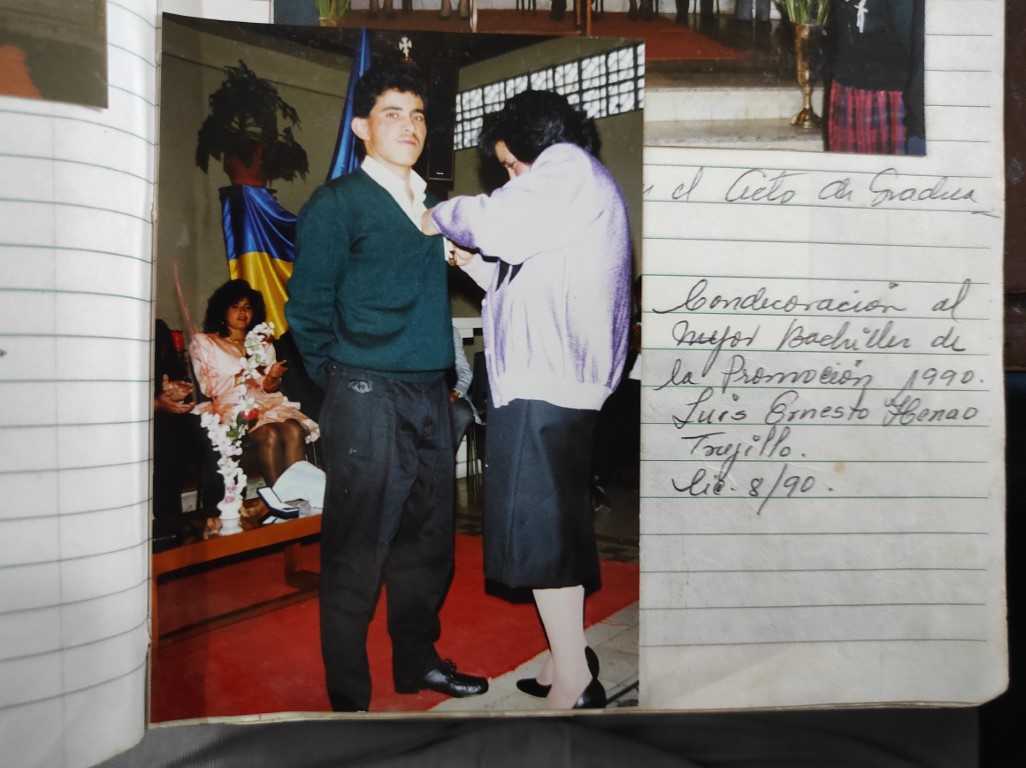 el Acto de Gradua
Condecoración al
Mejor Bachiller de
la Promoción 1990.
Luis Ernesto Henao
Trujillo.
Dic. 8/90.